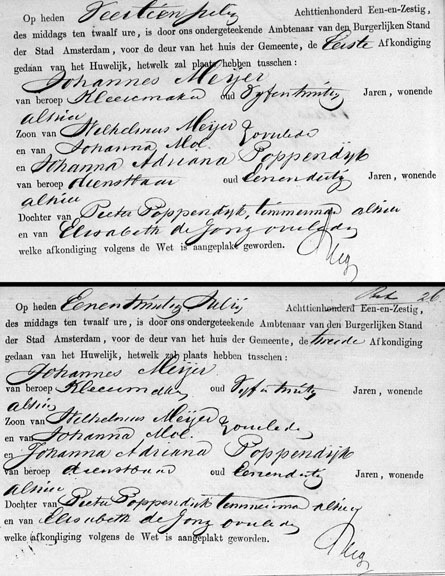 Op heden Veertien july Achttienhonderd Een-en-Zestig,
des middags ten twaalf ure, is door ons ondergeteekende Ambtenaar van den Burgerlijken Stand
der Stad Amsterdam, voor de deur van het huis der Gemeente, de Eerste Afkondiging
gedaan van het Huwelijk, hetwelk zal plaats hebben tusschen:
Johannes Meijer
van beroep Kleermaker oud Vyfentwintig Jaren, wonende
alhier
Zoon van Wilhelmus Meijer
en van Johanna Mol. overleden
en Johanna Adriana Poppendijk
van beroep dienstbaar oud Eenendertig Jaren, wonende
alhier
Dochter van Pieter Poppendijk, timmerman alhier
en van Elisabeth de Jong overleden
welke afkondiging volgens de Wet is aangeplakt geworden.
Op heden Eenentwintig July Achttienhonderd Een-en-Zestig,
des middags ten twaalf ure, is door ons ondergeteekende Ambtenaar van den Burgerlijken Stand
der Stad Amsterdam, voor de deur van het huis der Gemeente, de tweede Afkondiging
gedaan van het Huwelijk, hetwelk zal plaats hebben tusschen:
Johannes Meijer
van beroep Kleermaker oud Vyfentwintig Jaren, wonende
alhier
Zoon van Wilhelmus Meijer
en van Johanna Mol. overleden
en Johanna Adriana Poppendijk
van beroep dienstbaar oud Eenendertig Jaren, wonende
alhier
Dochter van Pieter Poppendijk timmerman alhier
en van Elisabeth de Jong overleden
welke afkondiging volgens de Wet is aangeplakt geworden.